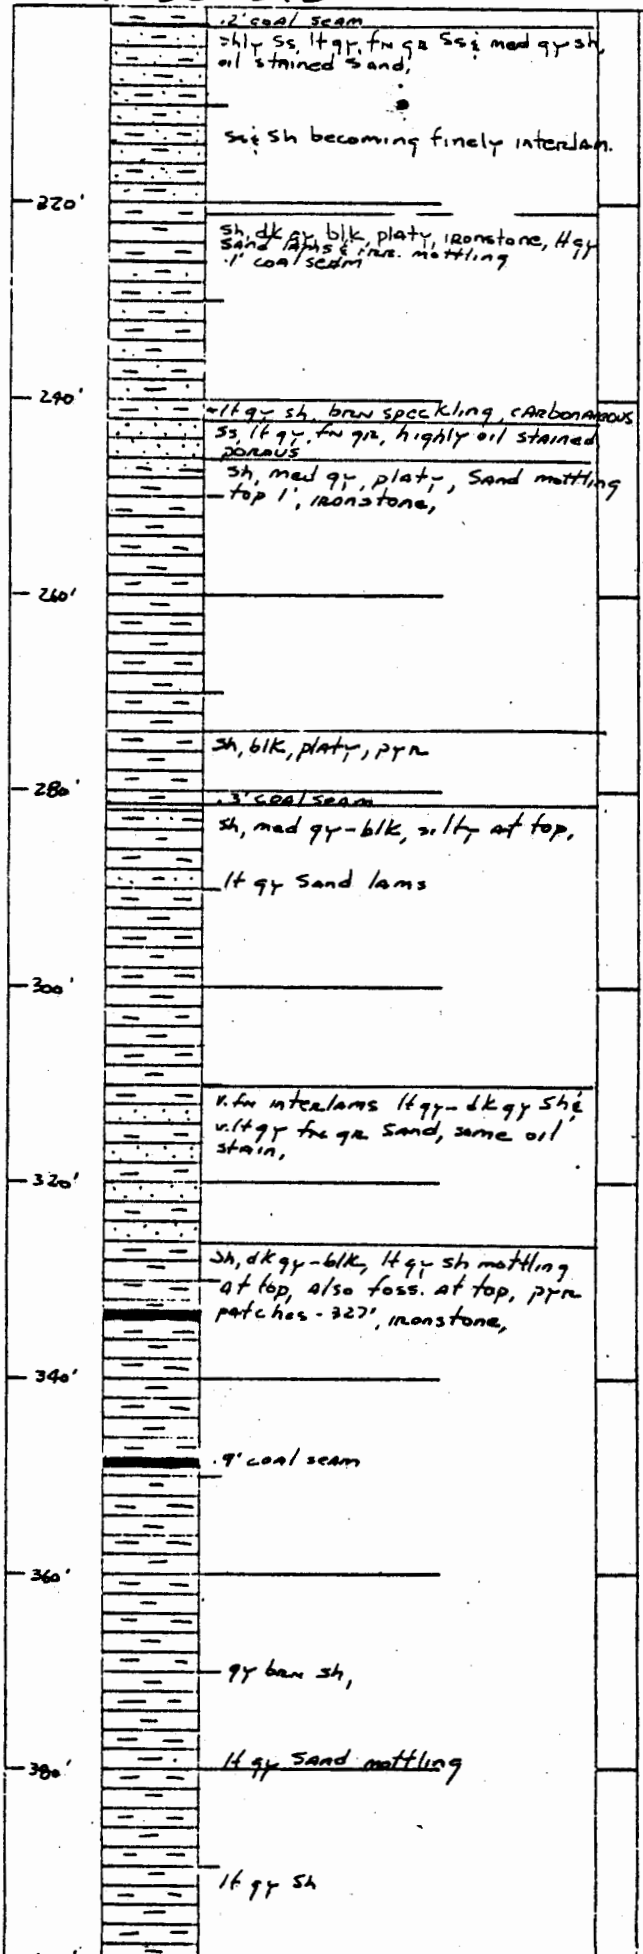 .2' coal seam
shly ss, lt gy, fn gr ss & med gy sh,
oil stained sand,
ss & sh becoming finely interlam.
220'
sh, dk gy blk, platy, ironstone, lt gy
sand lams & irr. mottling
.1' coal seam
240'
lt gy sh, brn speckling, carbonaceous
ss, lt gy, fn gr, highly oil stained
porous
sh, med gy, platy, sand mottling
top 1', ironstone,
260'
sh, blk, platy, pyr
280'
.3' coal seam
sh, med gy-blk, silty at top,
lt gy sand lams
300'
v. fn interlams lt gy-dk gy sh &
v. lt gy fn gr sand, some oil
stain,
320'
sh, dk gy-blk, lt gy sh mottling
at top, also foss. at top, pyr
patches - 327', ironstone,
340'
.9' coal seam
360'
gy brn sh,
380'
lt gy sand mottling
lt gy sh